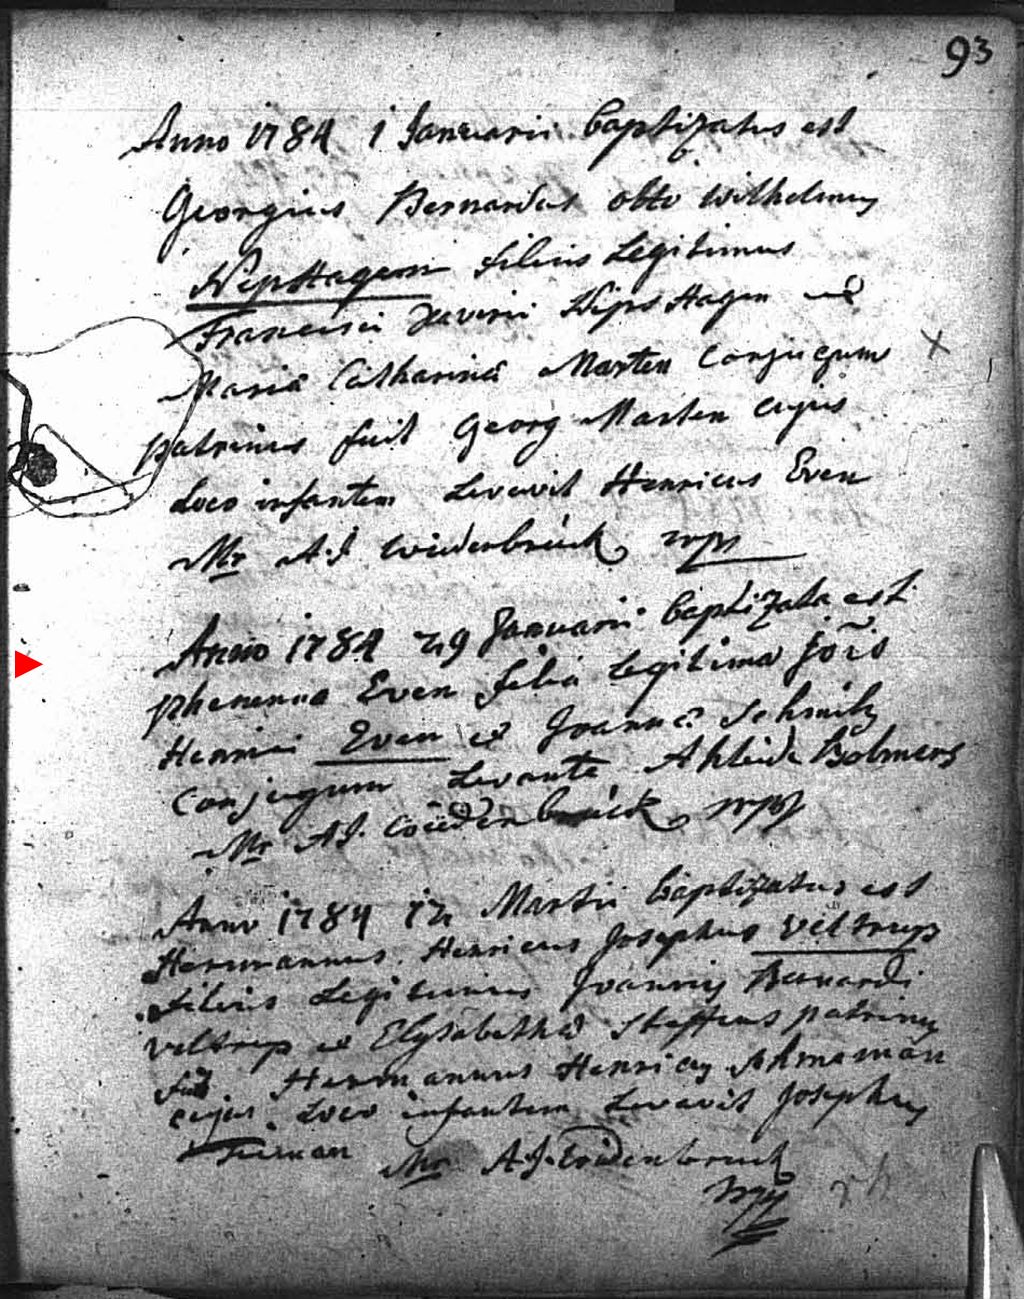 93
Anno 1784 1 Januarii baptizatus est
Georgius Bernardus otto wilhelmus
filius Legitimus
Francisci Xaverii Hagen et
Maria Catharina Marten conjugum
patrinus fuit Georg Marten cujus
Loco infantem Levavit Henricus Even
A.J. Wiedenbrück mpp
Anno 1784 29 Januarii baptizata est
Even filia legitima jois
Henrici Even et Joanna Schmitz
conjugum Levante Ahleide Bolmers
A.J. Wiedenbrück mpp
Anno 1784 12 Martii baptizatus est
Hermannus Henricus Josephus Veltrup
filius Legitimus Joannis Bernardi
veltrup et Elysabetha Steffens patrinus
fuit Hermannus Henricus
cujus Loco infantem Levavit Josephus
A.J. Wiedenbruck
mpp